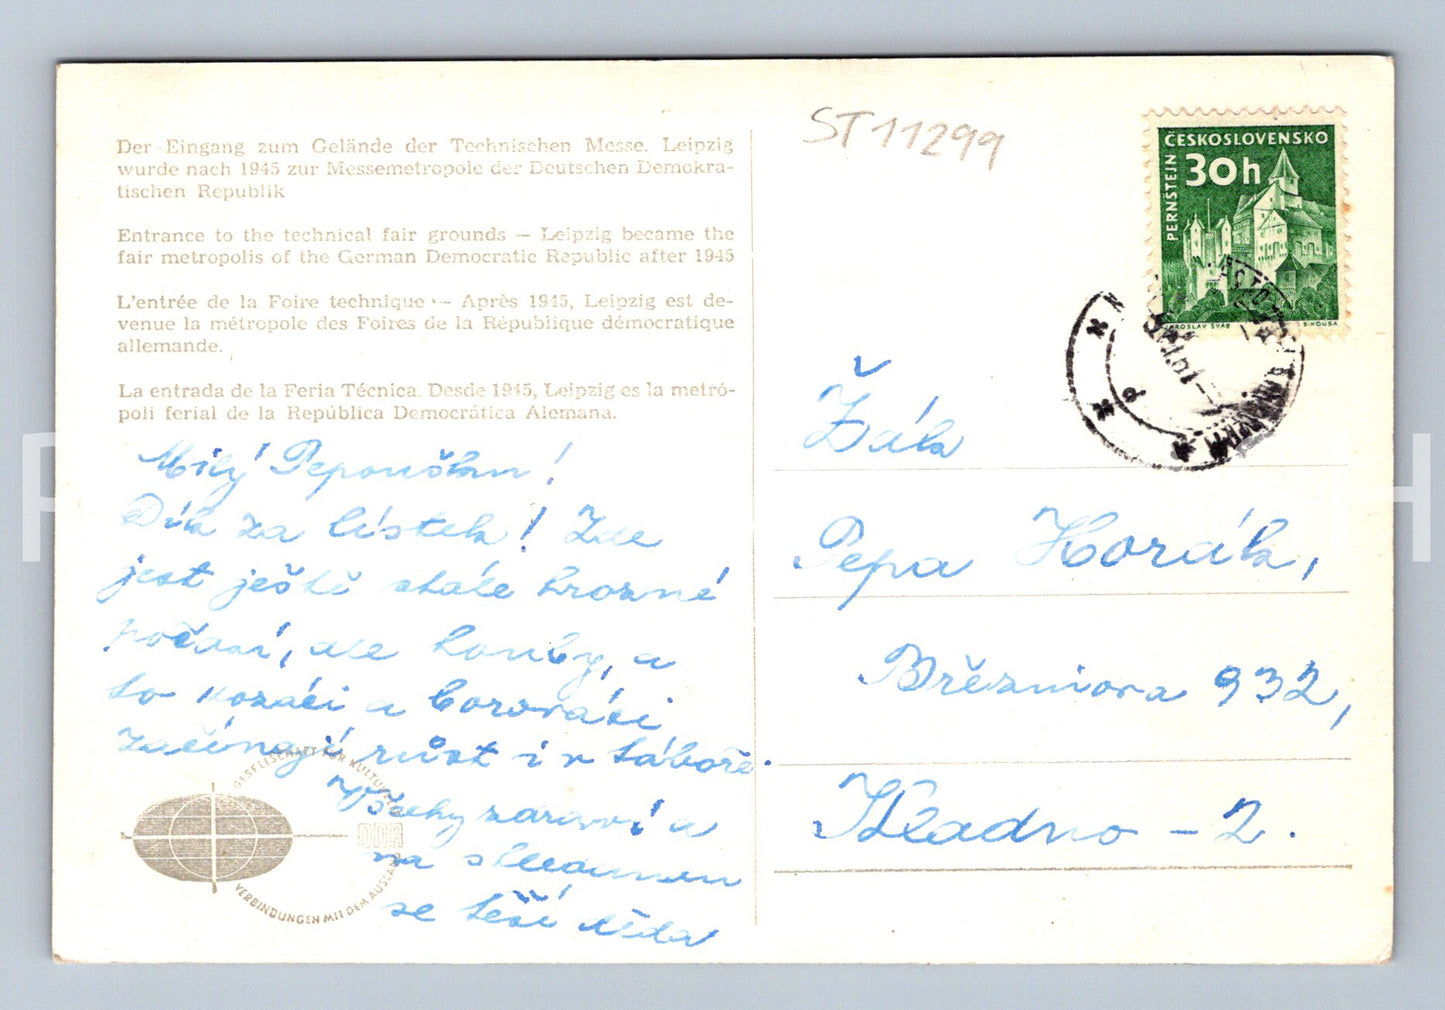 Der Eingang zum Gelände der Technischen Messe. Leipzig
wurde nach 1945 zur Messemetropole der Deutschen Demokra-
tischen Republik
Entrance to the technical fair grounds — Leipzig became the
fair metropolis of the German Democratic Republic after 1945
L'entrée de la Foire technique — Après 1945, Leipzig est de-
venue la métropole des Foires de la République démocratique
allemande.
La entrada de la Feria Técnica. Desde 1945, Leipzig es la metró-
poli ferial de la República Democrática Alemana.
Milý Pepouškn!
Dík za lístek! Zde
jest ještě stále hrozné
počasí, ale houby, a
to kozáci a borováci
začínají růst i v táboře.
Všechny zdraví a
na shledanou
se těší děda
GESELLSCHAFT FÜR KULTURELLE
DDR
VERBINDUNGEN MIT DEM AUSLAND
ST 11299
ČESKOSLOVENSKO
30h
PERNŠTEJN
JAROSLAV ŠVÁB
B. HOUSA
Žák
Pepa Horák,
Březinova 932,
Kladno - 2.